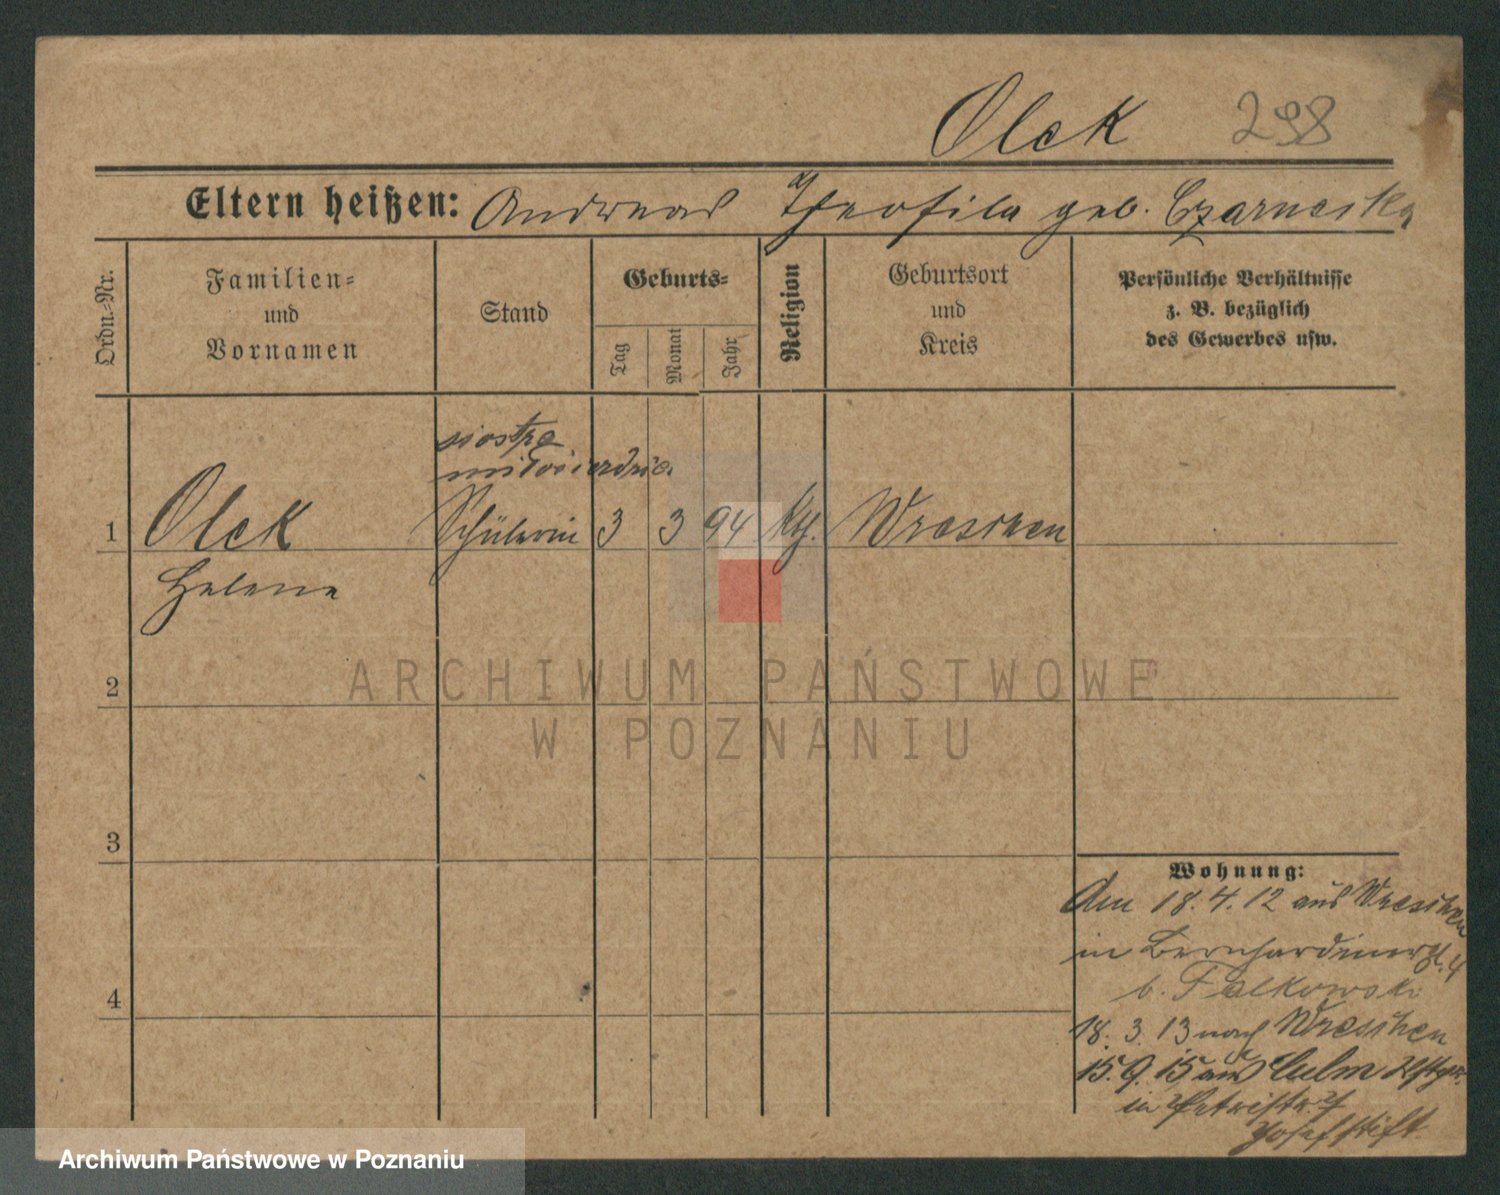 Olek 298
Eltern heißen: Andreas Theofila geb. Czarnecka
Ordn.-Nr.
Familien-
und
Vornamen
Stand
Geburts-
Tag
Monat
Jahr
Religion
Geburtsort
und
Kreis
Persönliche Verhältnisse
z. B. bezüglich
des Gewerbes usw.
siostra
miłosierdzia
1 Olek Schülerin 3 3 94 Kth. Wreschen
Helene
2
3
4
Wohnung:
Am 18.4.12 aus Wreschen
in Bernhardinerpl. 4
b. Falkowski
18. 3. 13 nach Wreschen
15. 9. 15 aus Culm
in Petristr. 7
Josefstift
ARCHIWUM PAŃSTWOWE
W POZNANIU
Archiwum Państwowe w Poznaniu